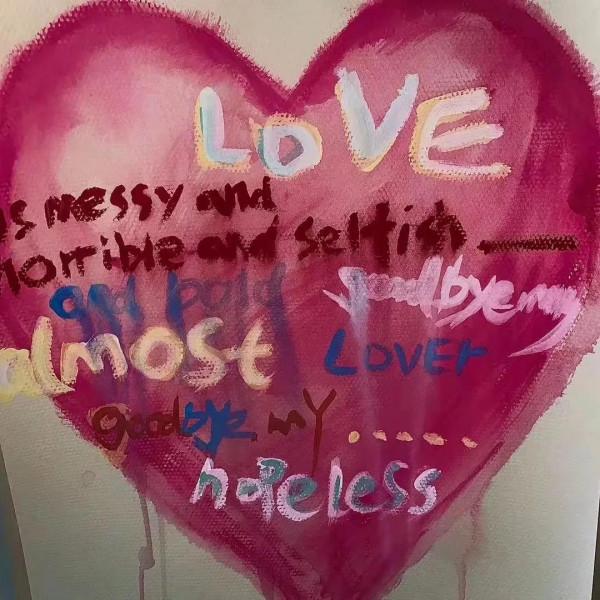 LOVE
is messy and
horrible and selfish —
and bold
goodbye my
almost LOVER
goodbye my ......
hopeless